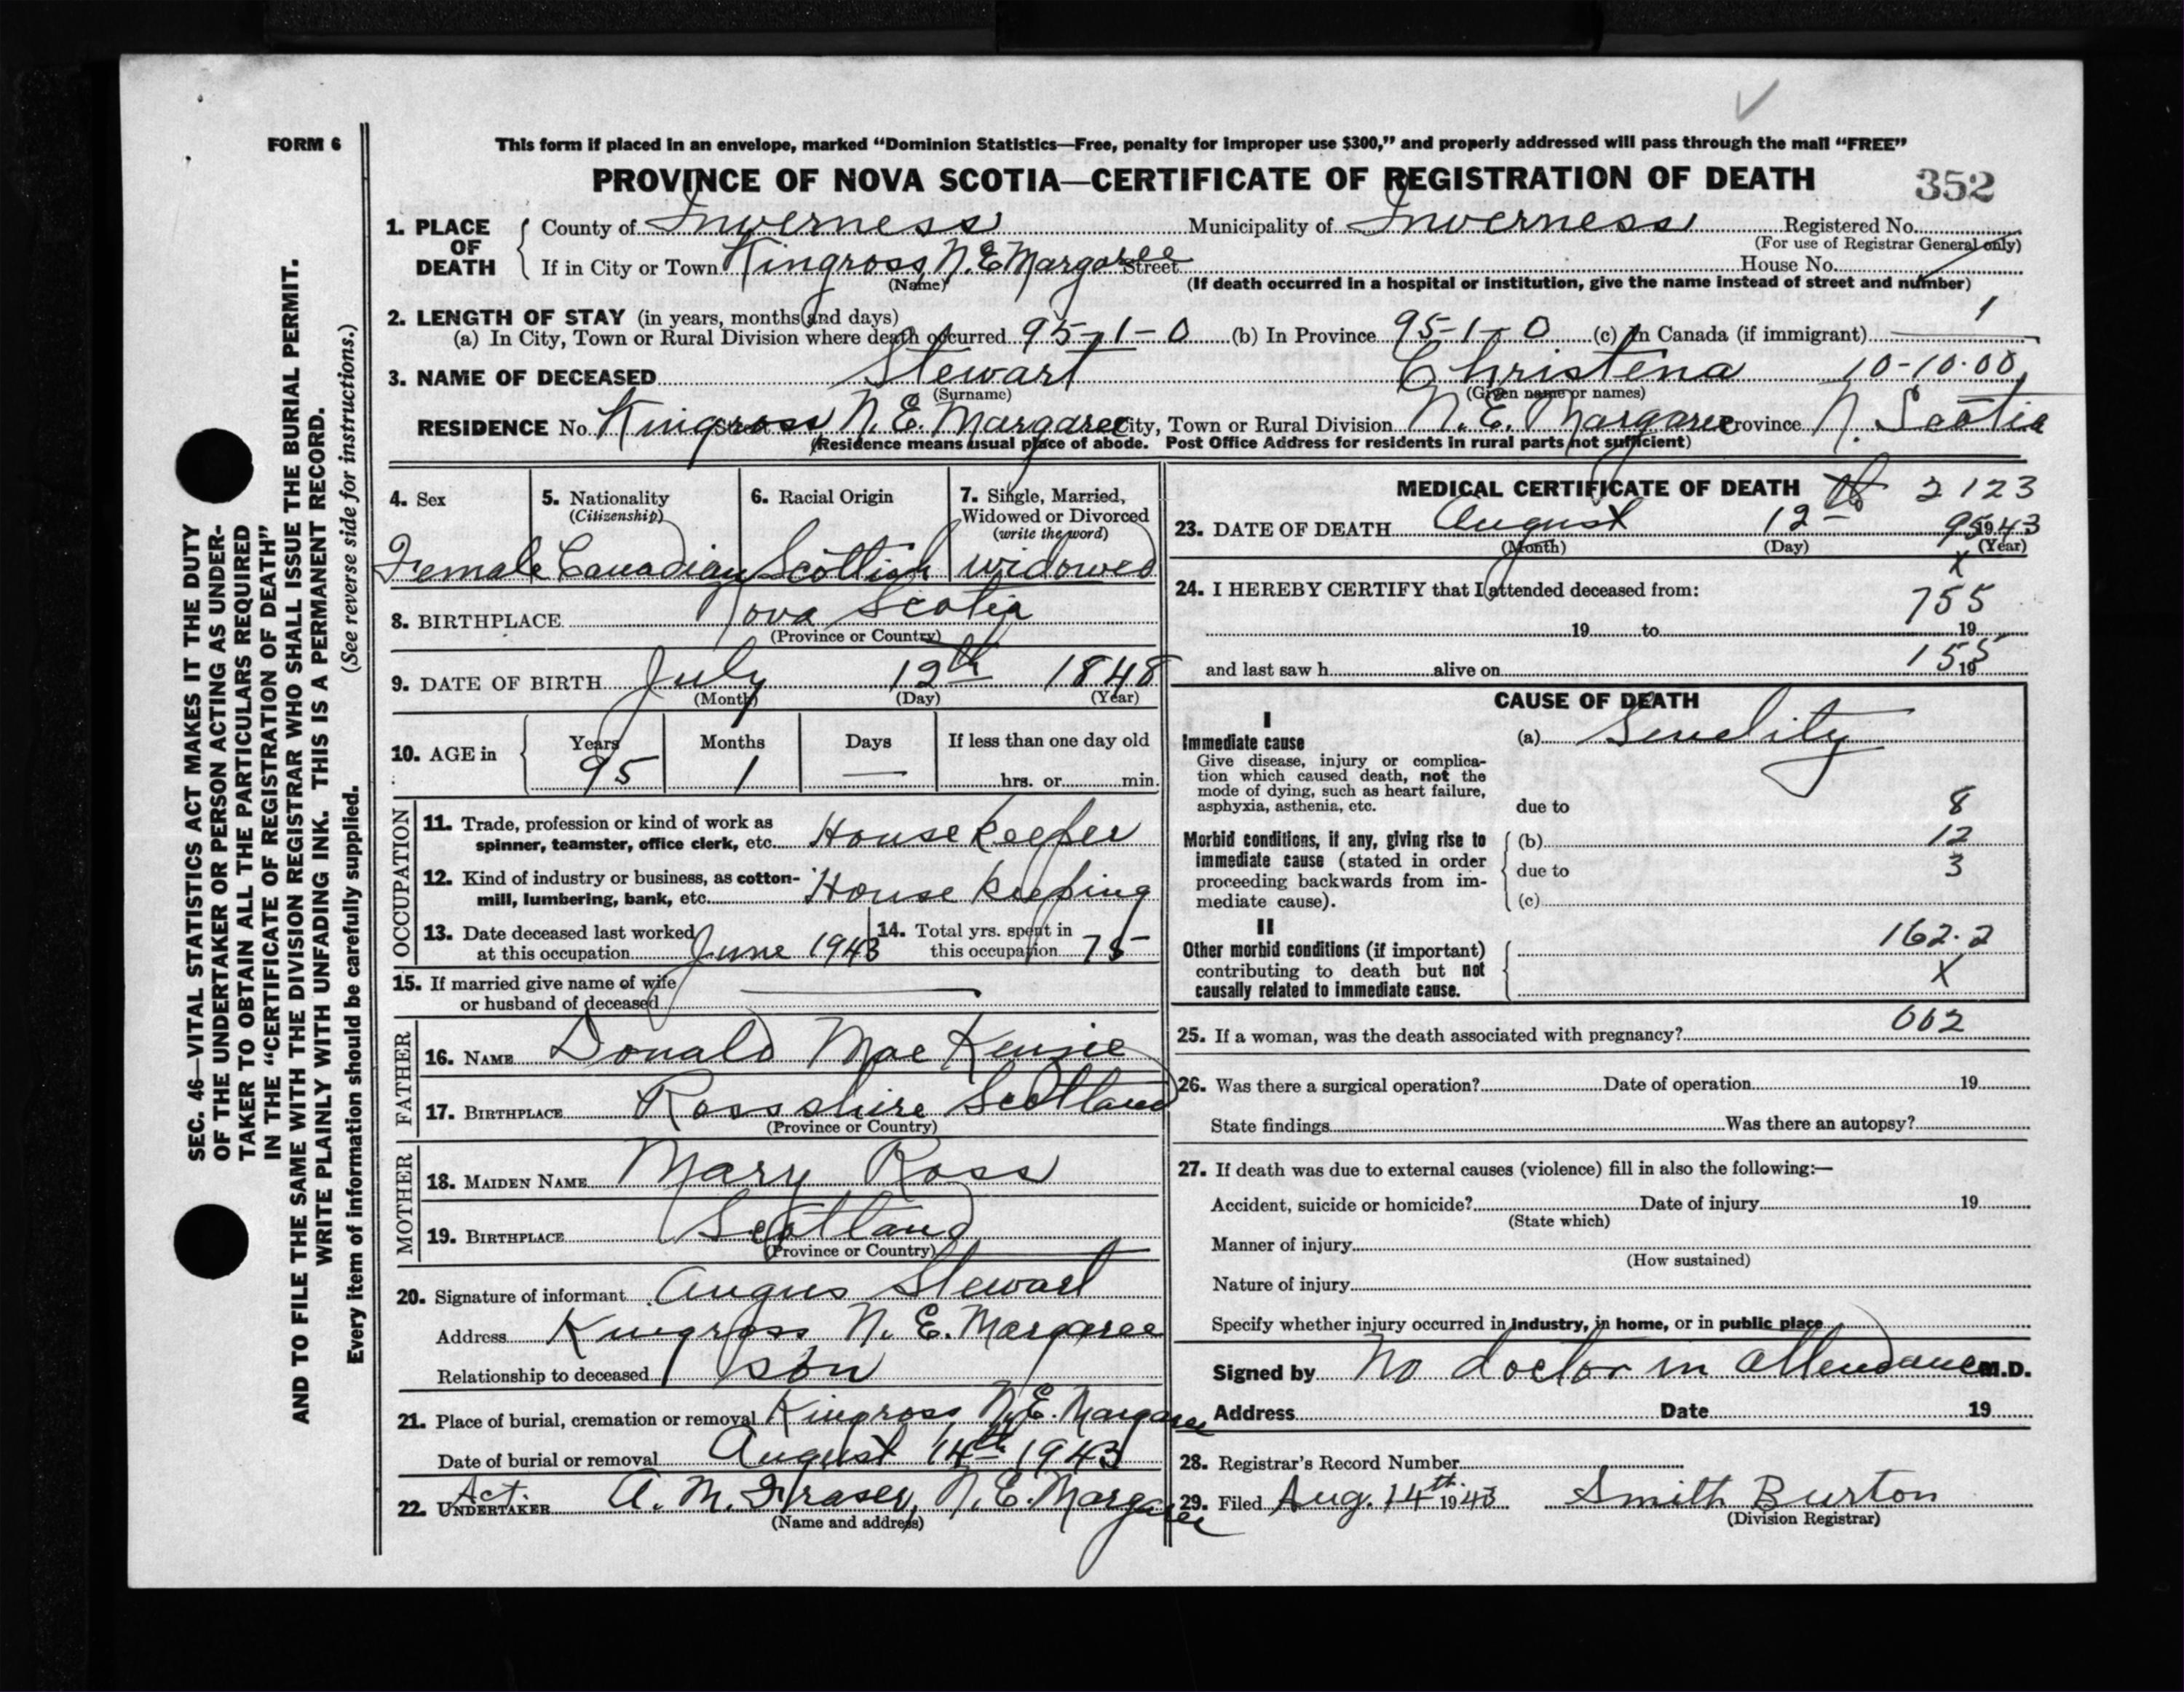 FORM 6
This form if placed in an envelope, marked "Dominion Statistics—Free, penalty for improper use $300," and properly addressed will pass through the mail "FREE"
PROVINCE OF NOVA SCOTIA—CERTIFICATE OF REGISTRATION OF DEATH 352
1. PLACE OF DEATH County of Inverness Municipality of Inverness Registered No.
(For use of Registrar General only)
If in City or Town Kingross, N.E Margaree Street House No.
(Name) (If death occurred in a hospital or institution, give the name instead of street and number)
2. LENGTH OF STAY (in years, months and days) 1
(a) In City, Town or Rural Division where death occurred 95-1-0 (b) In Province 95-1-0 (c) In Canada (if immigrant)
3. NAME OF DECEASED Stewart Christena 10-10-00
(Surname) (Given name or names)
RESIDENCE No. Kingross N. E. Margaree City, Town or Rural Division N. E. Margaree Province N. Scotia
(Residence means usual place of abode. Post Office Address for residents in rural parts not sufficient)
4. Sex
Female
5. Nationality
(Citizenship)
Canadian
6. Racial Origin
Scottish
7. Single, Married,
Widowed or Divorced
(write the word)
widowed
8. BIRTHPLACE Nova Scotia
(Province or Country)
9. DATE OF BIRTH July 12th 1848
(Month) (Day) (Year)
10. AGE in Years Months Days If less than one day old
95 1 — hrs. or min.
OCCUPATION
11. Trade, profession or kind of work as
spinner, teamster, office clerk, etc. Housekeeper
12. Kind of industry or business, as cotton-
mill, lumbering, bank, etc. House keeping
13. Date deceased last worked
at this occupation June 1943
14. Total yrs. spent in
this occupation 75
15. If married give name of wife
or husband of deceased
FATHER
16. NAME Donald MacKenzie
17. BIRTHPLACE Rossshire Scotland
(Province or Country)
MOTHER
18. MAIDEN NAME Mary Ross
19. BIRTHPLACE Scotland
(Province or Country)
20. Signature of informant Angus Stewart
Address Kingross N. E. Margaree
Relationship to deceased son
21. Place of burial, cremation or removal Kingross N.E. Margaree
Date of burial or removal August 14th 1943
Act.
22. UNDERTAKER A. M. Fraser, N.E. Margaree
(Name and address)
MEDICAL CERTIFICATE OF DEATH 2123
23. DATE OF DEATH August 12th 95 1943
(Month) (Day) (Year)
X
24. I HEREBY CERTIFY that I attended deceased from:
755
19 to 19
155
and last saw h alive on 19
CAUSE OF DEATH
I
Immediate cause (a) Senelity
Give disease, injury or complica-
tion which caused death, not the
mode of dying, such as heart failure,
asphyxia, asthenia, etc. due to 8
Morbid conditions, if any, giving rise to (b) 12
immediate cause (stated in order due to 3
proceeding backwards from im-
mediate cause). (c)
II
162.2
Other morbid conditions (if important)
contributing to death but not X
causally related to immediate cause.
25. If a woman, was the death associated with pregnancy? 662
26. Was there a surgical operation? Date of operation 19
State findings Was there an autopsy?
27. If death was due to external causes (violence) fill in also the following:—
Accident, suicide or homicide? Date of injury 19
(State which)
Manner of injury
(How sustained)
Nature of injury
Specify whether injury occurred in industry, in home, or in public place
Signed by No doctor in attendance M.D.
Address Date 19
28. Registrar's Record Number
29. Filed Aug. 14th 1943 Smith Burton
(Division Registrar)
SEC. 46—VITAL STATISTICS ACT MAKES IT THE DUTY
OF THE UNDERTAKER OR PERSON ACTING AS UNDER-
TAKER TO OBTAIN ALL THE PARTICULARS REQUIRED
IN THE "CERTIFICATE OF REGISTRATION OF DEATH"
AND TO FILE THE SAME WITH THE DIVISION REGISTRAR WHO SHALL ISSUE THE BURIAL PERMIT.
WRITE PLAINLY WITH UNFADING INK. THIS IS A PERMANENT RECORD.
Every item of information should be carefully supplied. (See reverse side for instructions.)